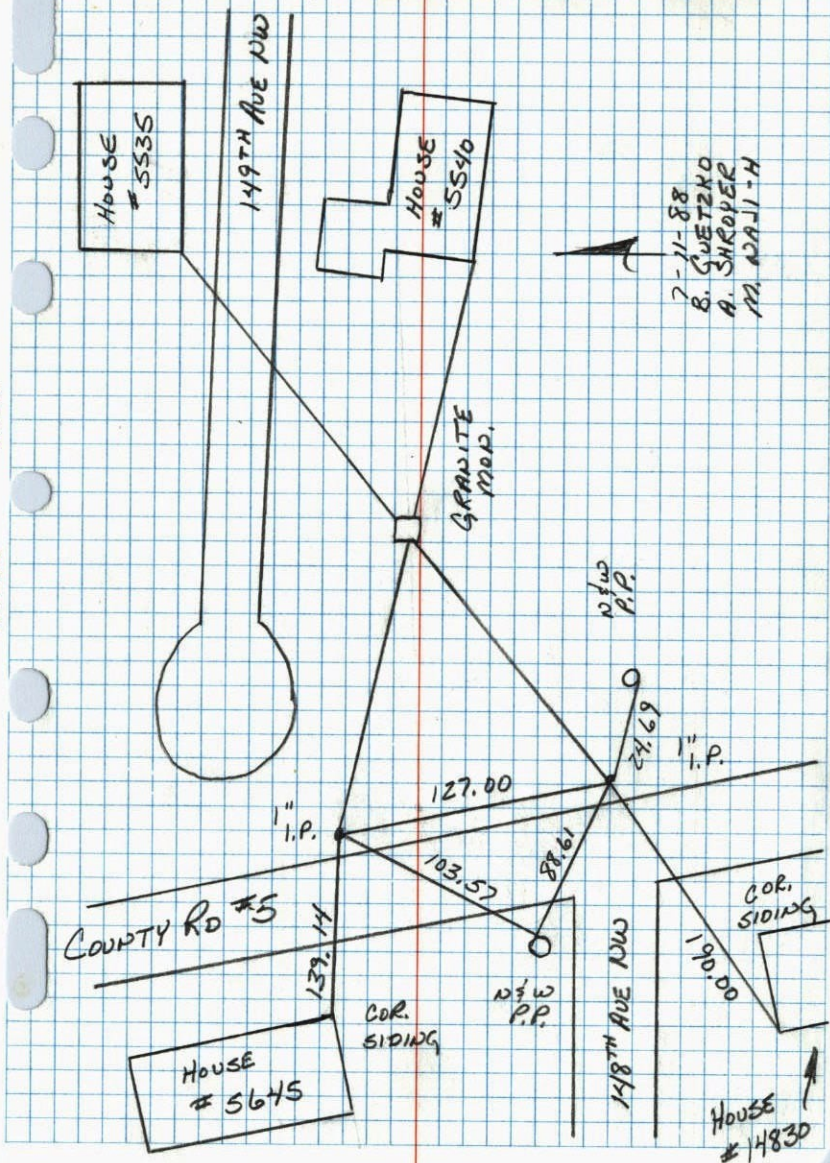 HOUSE
# 5535
149TH AVE NW
HOUSE
# 5540
7-11-88
B. GUETZKO
A. SHROYER
M. NAJI-H
GRANITE
MON.
N & W
P.P.
24.69
1"
I.P.
127.00
1"
I.P.
103.57
88.61
COUNTY RD #5
139.14
COR.
SIDING
N & W
P.P.
148TH AVE NW
190.00
COR.
SIDING
HOUSE
# 5645
HOUSE
# 14830